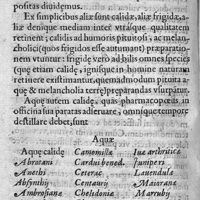 positas diuidemus.
Ex simplicibus aliæ sunt calidæ, aliæ frigidæ,
aliæ denique mediam inter vtrásque qualitatem
retinent; calidis ad humores pituitosos, ac melan-
cholici (quos frigidos esse autumant) præparatio-
nem vtuntur: frigidę verò ad bilis omnes species
(quæ etiam calidæ, ignisque in homine naturam
retinere existimantur, quemadmodum pituita a-
quæ & melancholia terrę) præparandas vsurpātur.
Aquę autem calidę, quas pharmacopœis in
officina sua paratas adseruare, atque opportunè
destillare debet, sunt
Aquæ
Aque calidę Camomillæ Iuæ arthriticæ
Abrotani Cardui bened. Iuniperi
Anethi Ceterac Lauendulæ
Absynthij Centaurij Maioranæ
Ambrosianæ Chelidonia Marrubij